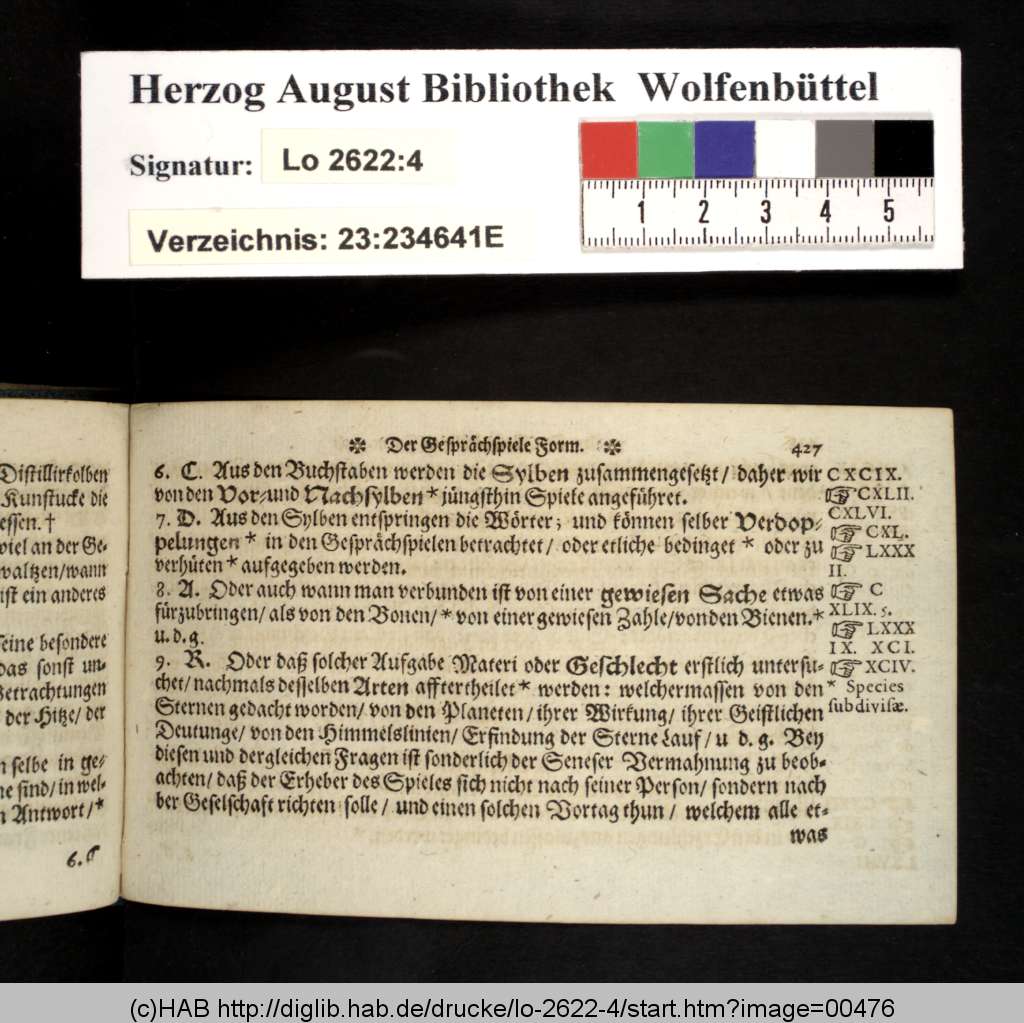 Herzog August Bibliothek Wolfenbüttel
Signatur: Lo 2622:4
Verzeichnis: 23:234641E
1 2 3 4 5
Distillirkolben
Kunstucke die
essen. †
viel an der Ge-
waltzen/wann
ist ein anderes
seine besondere
das sonst un-
Betrachtungen
der Hitze/ der
n selbe in ge-
ne sind/ in wel-
n Antwort/*
6. C
Der Gesprächspiele Form. 427
6. C. Aus den Buchstaben werden die Sylben zusammengesetzt/ daher wir
von den Vor- und Nachsylben * jüngsthin Spiele angeführet.
7. D. Aus den Sylben entspringen die Wörter; und können selber Verdop-
pelungen * in den Gesprächspielen betrachtet/ oder etliche bedinget * oder zu
verhüten * aufgegeben werden.
8. A. Oder auch wann man verbunden ist von einer gewiesen Sache etwas
fürzubringen/ als von den Bonen/ * von einer gewiesen Zahle/ von den Bienen.*
u. d. g.
9. R. Oder daß solcher Aufgabe Materi oder Geschlecht erstlich untersu-
chet/ nachmals desselben Arten afftertheilet * werden: welchermassen von den
Sternen gedacht worden/ von den Planeten/ ihrer Wirkung/ ihrer Geistlichen
Deutunge/ von den Himmelslinien/ Erfindung der Sterne Lauf/ u. d. g. Bey
diesen und dergleichen Fragen ist sonderlich der Seneser Vermahnung zu beob-
achten/ daß der Erheber des Spieles sich nicht nach seiner Person/ sondern nach
der Geselschaft richten solle/ und einen solchen Vortag thun/ welchem alle et-
was
CXCIX.
☞ CXLII.
CXLVI.
☞ CXL.
☞ LXXX
II.
☞ C
XLIX. 5.
☞ LXXX
IX. XCI.
☞ XCIV.
* Species
subdivisæ.
(c)HAB http://diglib.hab.de/drucke/lo-2622-4/start.htm?image=00476